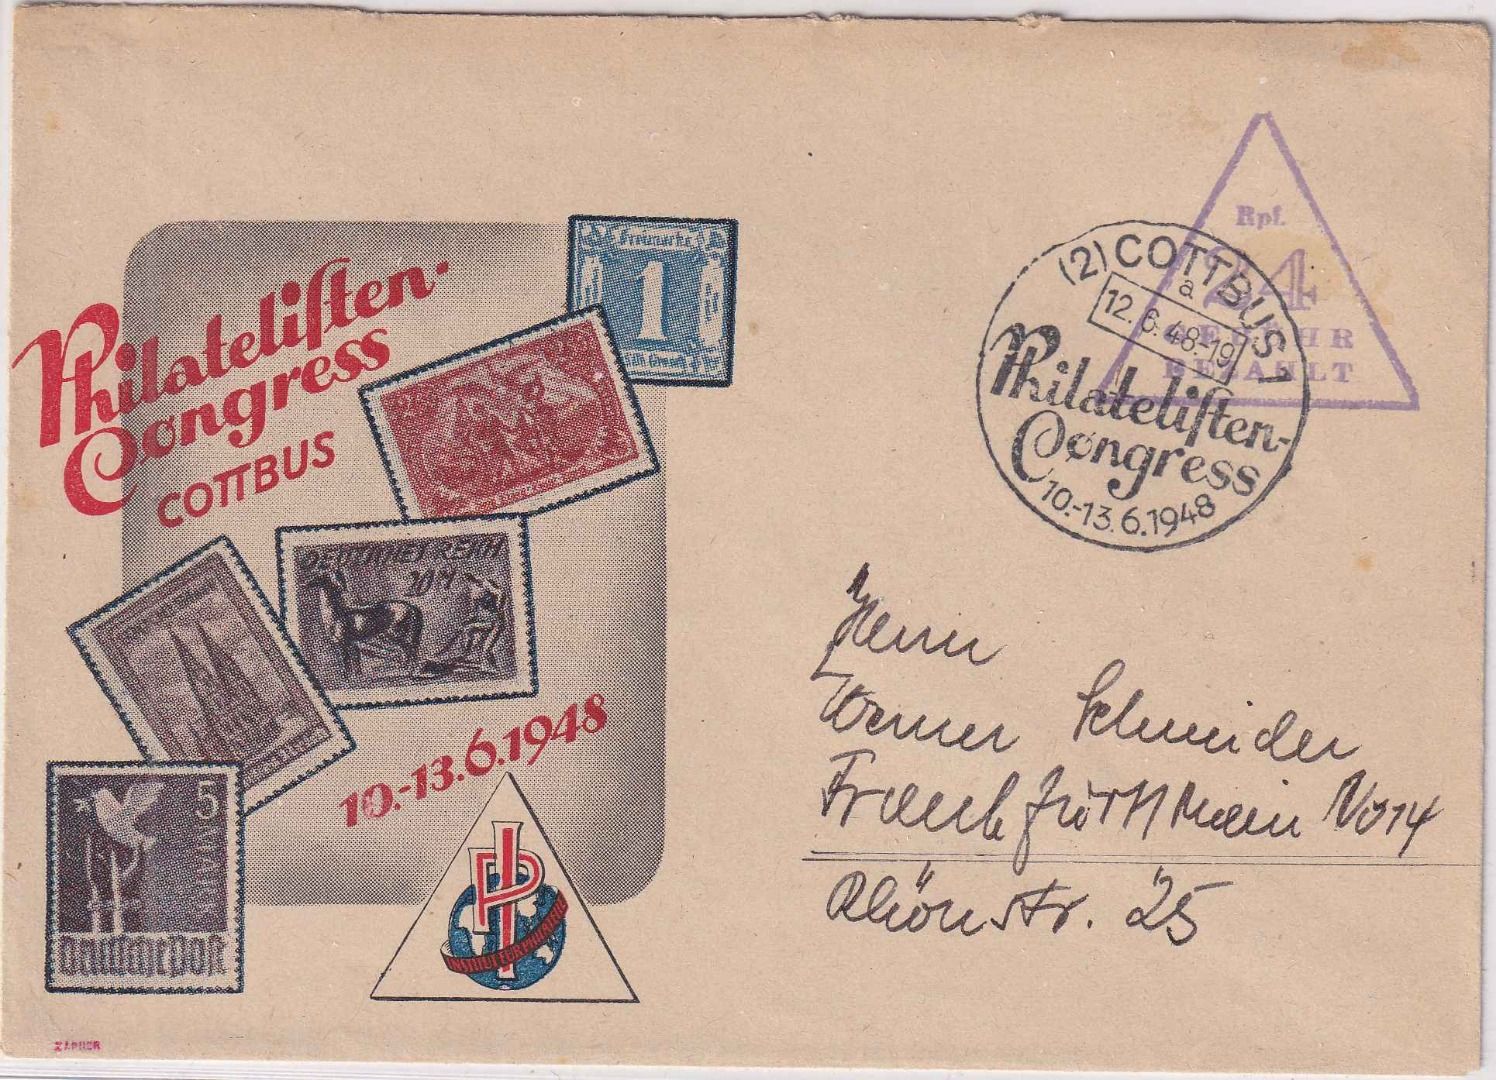 Philatelisten-
Congress
COTTBUS
Freimarke
1
DEUTSCHES REICH
20 M
5
MARK
Deutsche Post
10.-13.6.1948
IP
INSTITUT FÜR PHILATELIE
ZAPNER
Rpf.
24
GEBÜHR
BEZAHLT
(2) COTTBUS 1
a
12.6.48-19
Philatelisten-
Congress
10.-13.6.1948
Herrn
Werner Schneider
Frankfurt/Main No 14
Rhönstr. 25